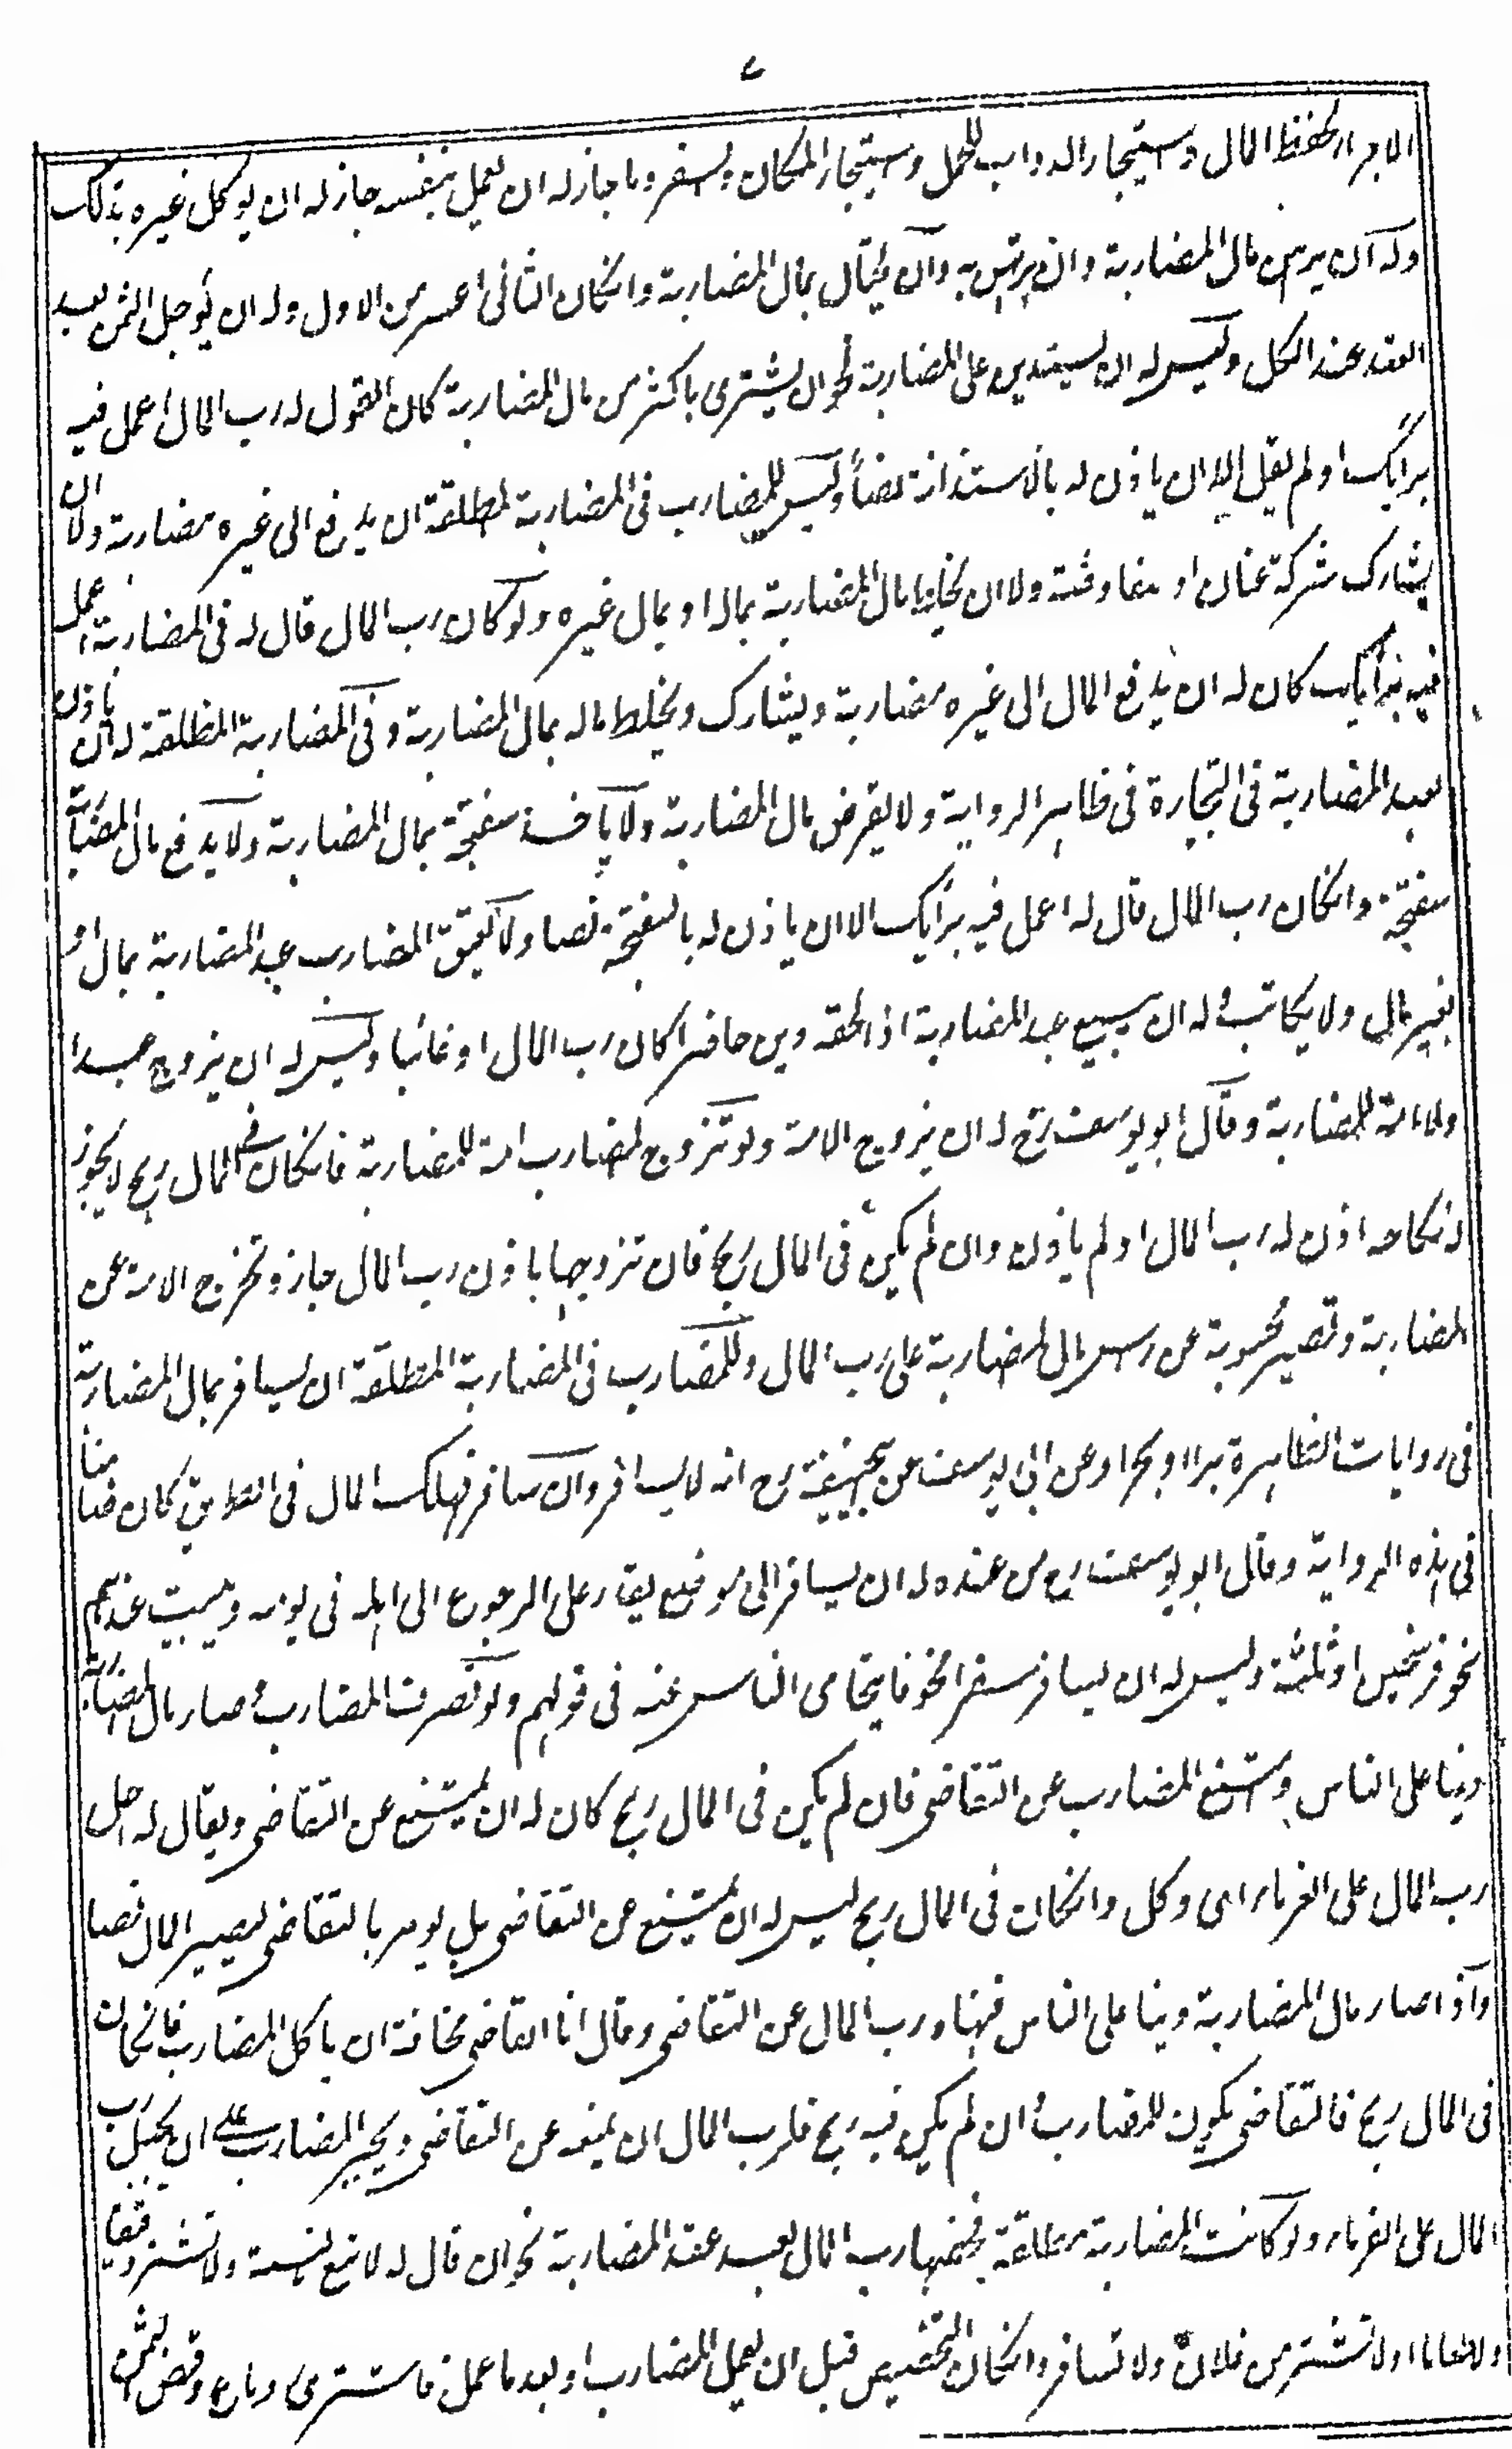 ٧
الاجراء لحفظ المال واستيجار الدواب للحمل واستيجار المكان والسفر وما جاز له ان يعمل بنفسه جاز له ان يوكل غيره بذلك
وله ان يرهن مال المضاربة وان يرتهن به وان يحتال بمال المضاربة وانكان الثانى اعسر من الاول وله ان يؤجل الثمن بعد
العقد عند الكل وليس له ان يستدين على المضاربة نحو ان يشترى باكثر من مال المضاربة كان القول له رب المال اعمل فيه
برأيك او لم يقل الا ان ياذن له بالاستدانة نصاً وليس للمضارب فى المضاربة المطلقة ان يدفع الى غيره مضاربة ولا ان
يشارك شركة عنان او مفاوضة ولا ان يخلط مال المضاربة بماله او بمال غيره ولو كان رب المال قال له فى المضاربة اعمل
فيه برأيك كان له ان يدفع المال الى غيره مضاربة ويشارك ويخلط ماله بمال المضاربة وفى المضاربة المطلقة له ان ياذن
لعبد المضاربة فى التجارة فى ظاهر الرواية ولا يقرض مال المضاربة ولا ياخذ سفتجة بمال المضاربة ولا يدفع مال المضاربة
سفتجة وانكان رب المال قال له اعمل فيه برأيك الا ان ياذن له بالسفتجة نصا ولا يعتق المضارب عبد المضاربة بمال او
بغير مال ولا يكاتب وله ان يبيع عبد المضاربة اذا لحقه دين حاضرا كان رب المال او غائبا وليس له ان يزوج عبدا
ولا امة للمضاربة وقال ابو يوسف رح له ان يزوج الامة ولو تزوج المضارب امة للمضاربة فانكان فى المال ربح لا يجوز
نكاحه اذن له رب المال او لم ياذن وان لم يكن فى المال ربح فان تزوجها باذن رب المال جاز وتخرج الامة عن
المضاربة وتصير محسوبة عن راس مال المضاربة على رب المال وللمضارب فى المضاربة المطلقة ان يسافر بمال المضاربة
فى روايات الظاهرة برا او بحرا وعن ابى يوسف عن ابيحنيفة رح انه لا يسافر وان سافر فهلك المال فى الطريق كان ضامنا
فى هذه الرواية وقال ابو يوسف رح من عنده له ان يسافر الى موضع يقدر على الرجوع الى اهله فى يومه ويبيت عندهم
نحو فرسخين او ثلثة وليس له ان يسافر سفرا مخوفا يتحامى الناس عنه فى قولهم ولو تصرف المضارب وصار مال المضاربة
دينا على الناس وامتنع المضارب عن التقاضى فان لم يكن فى المال ربح كان له ان يمتنع عن التقاضى ويقال له احل
رب المال على الغرماء اى وكل وانكان فى المال ربح ليس له ان يمتنع عن التقاضى بل يومر بالتقاضى ليصير المال نضا
واذا صار مال المضاربة دينا على الناس فنهاه رب المال عن التقاضى وقال انا اتقاضى مخافة ان ياكل المضارب فانكان
فى المال ربح فالتقاضى يكون للمضارب وان لم يكن فيه ربح فلرب المال ان يمنعه عن التقاضى ويجبر المضارب على ان يحيل رب
المال على الغرماء ولو كانت المضاربة مطلقة فخصها رب المال بعد عقد المضاربة نحو ان قال له لا تبع بنسية ولا تشتر دقيقا
ولا طعاما او لا تشتر من فلان ولا تسافر وانكان التخصيص قبل ان يعمل المضارب او بعد ما عمل فاشترى وباع وقبض الثمن